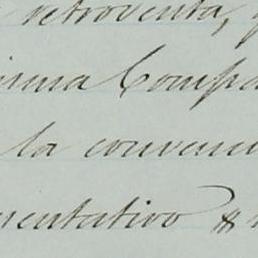 retroventa,
isma Compa
la convens
sentativo